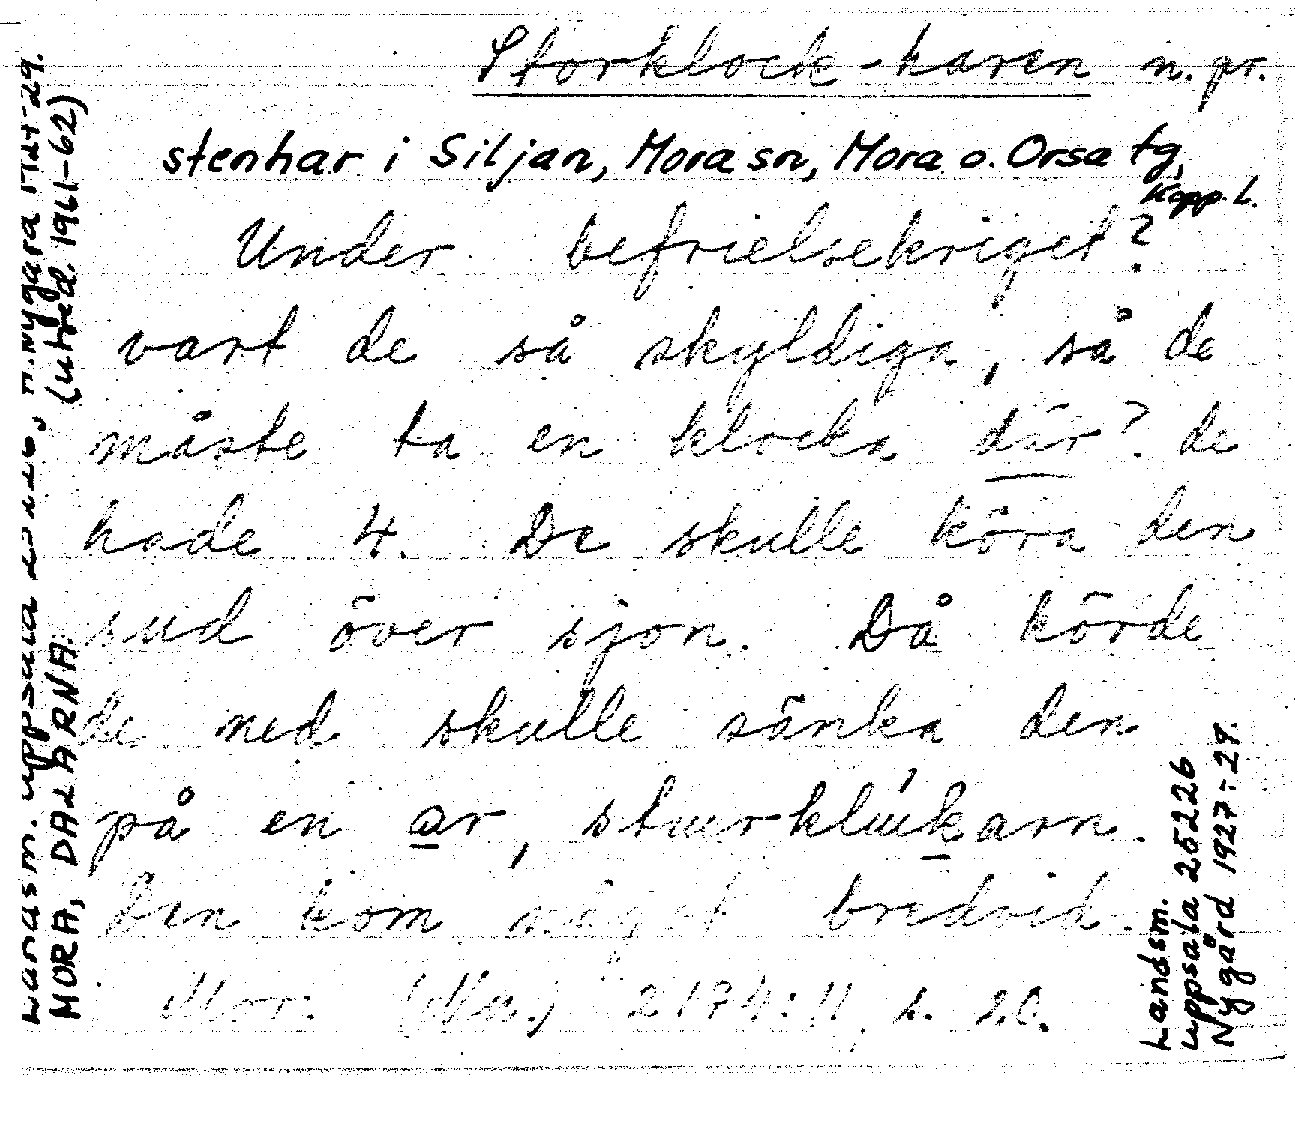 Storklock-haren n. pr.
stenhar i Siljan, Mora sn, Mora o. Orsa tg,
Kopp. l.
Under befrielsekriget?
vart de så skyldiga, så de
måste ta en klocka där? de
hade 4. De skulle köra den
sud över sjon. Då körde
de ned skulle sänka den
på en ar, stuurkluukarn.
Den kom något bredvid.
Mor. (Nu.) 2174:11, s. 20.
Landsm. Uppsala N. Nygård 1927-29.
MORA, DALARNA. (utred. 1961-62)
Landsm.
Uppsala 25226
Nygård 1927-29.